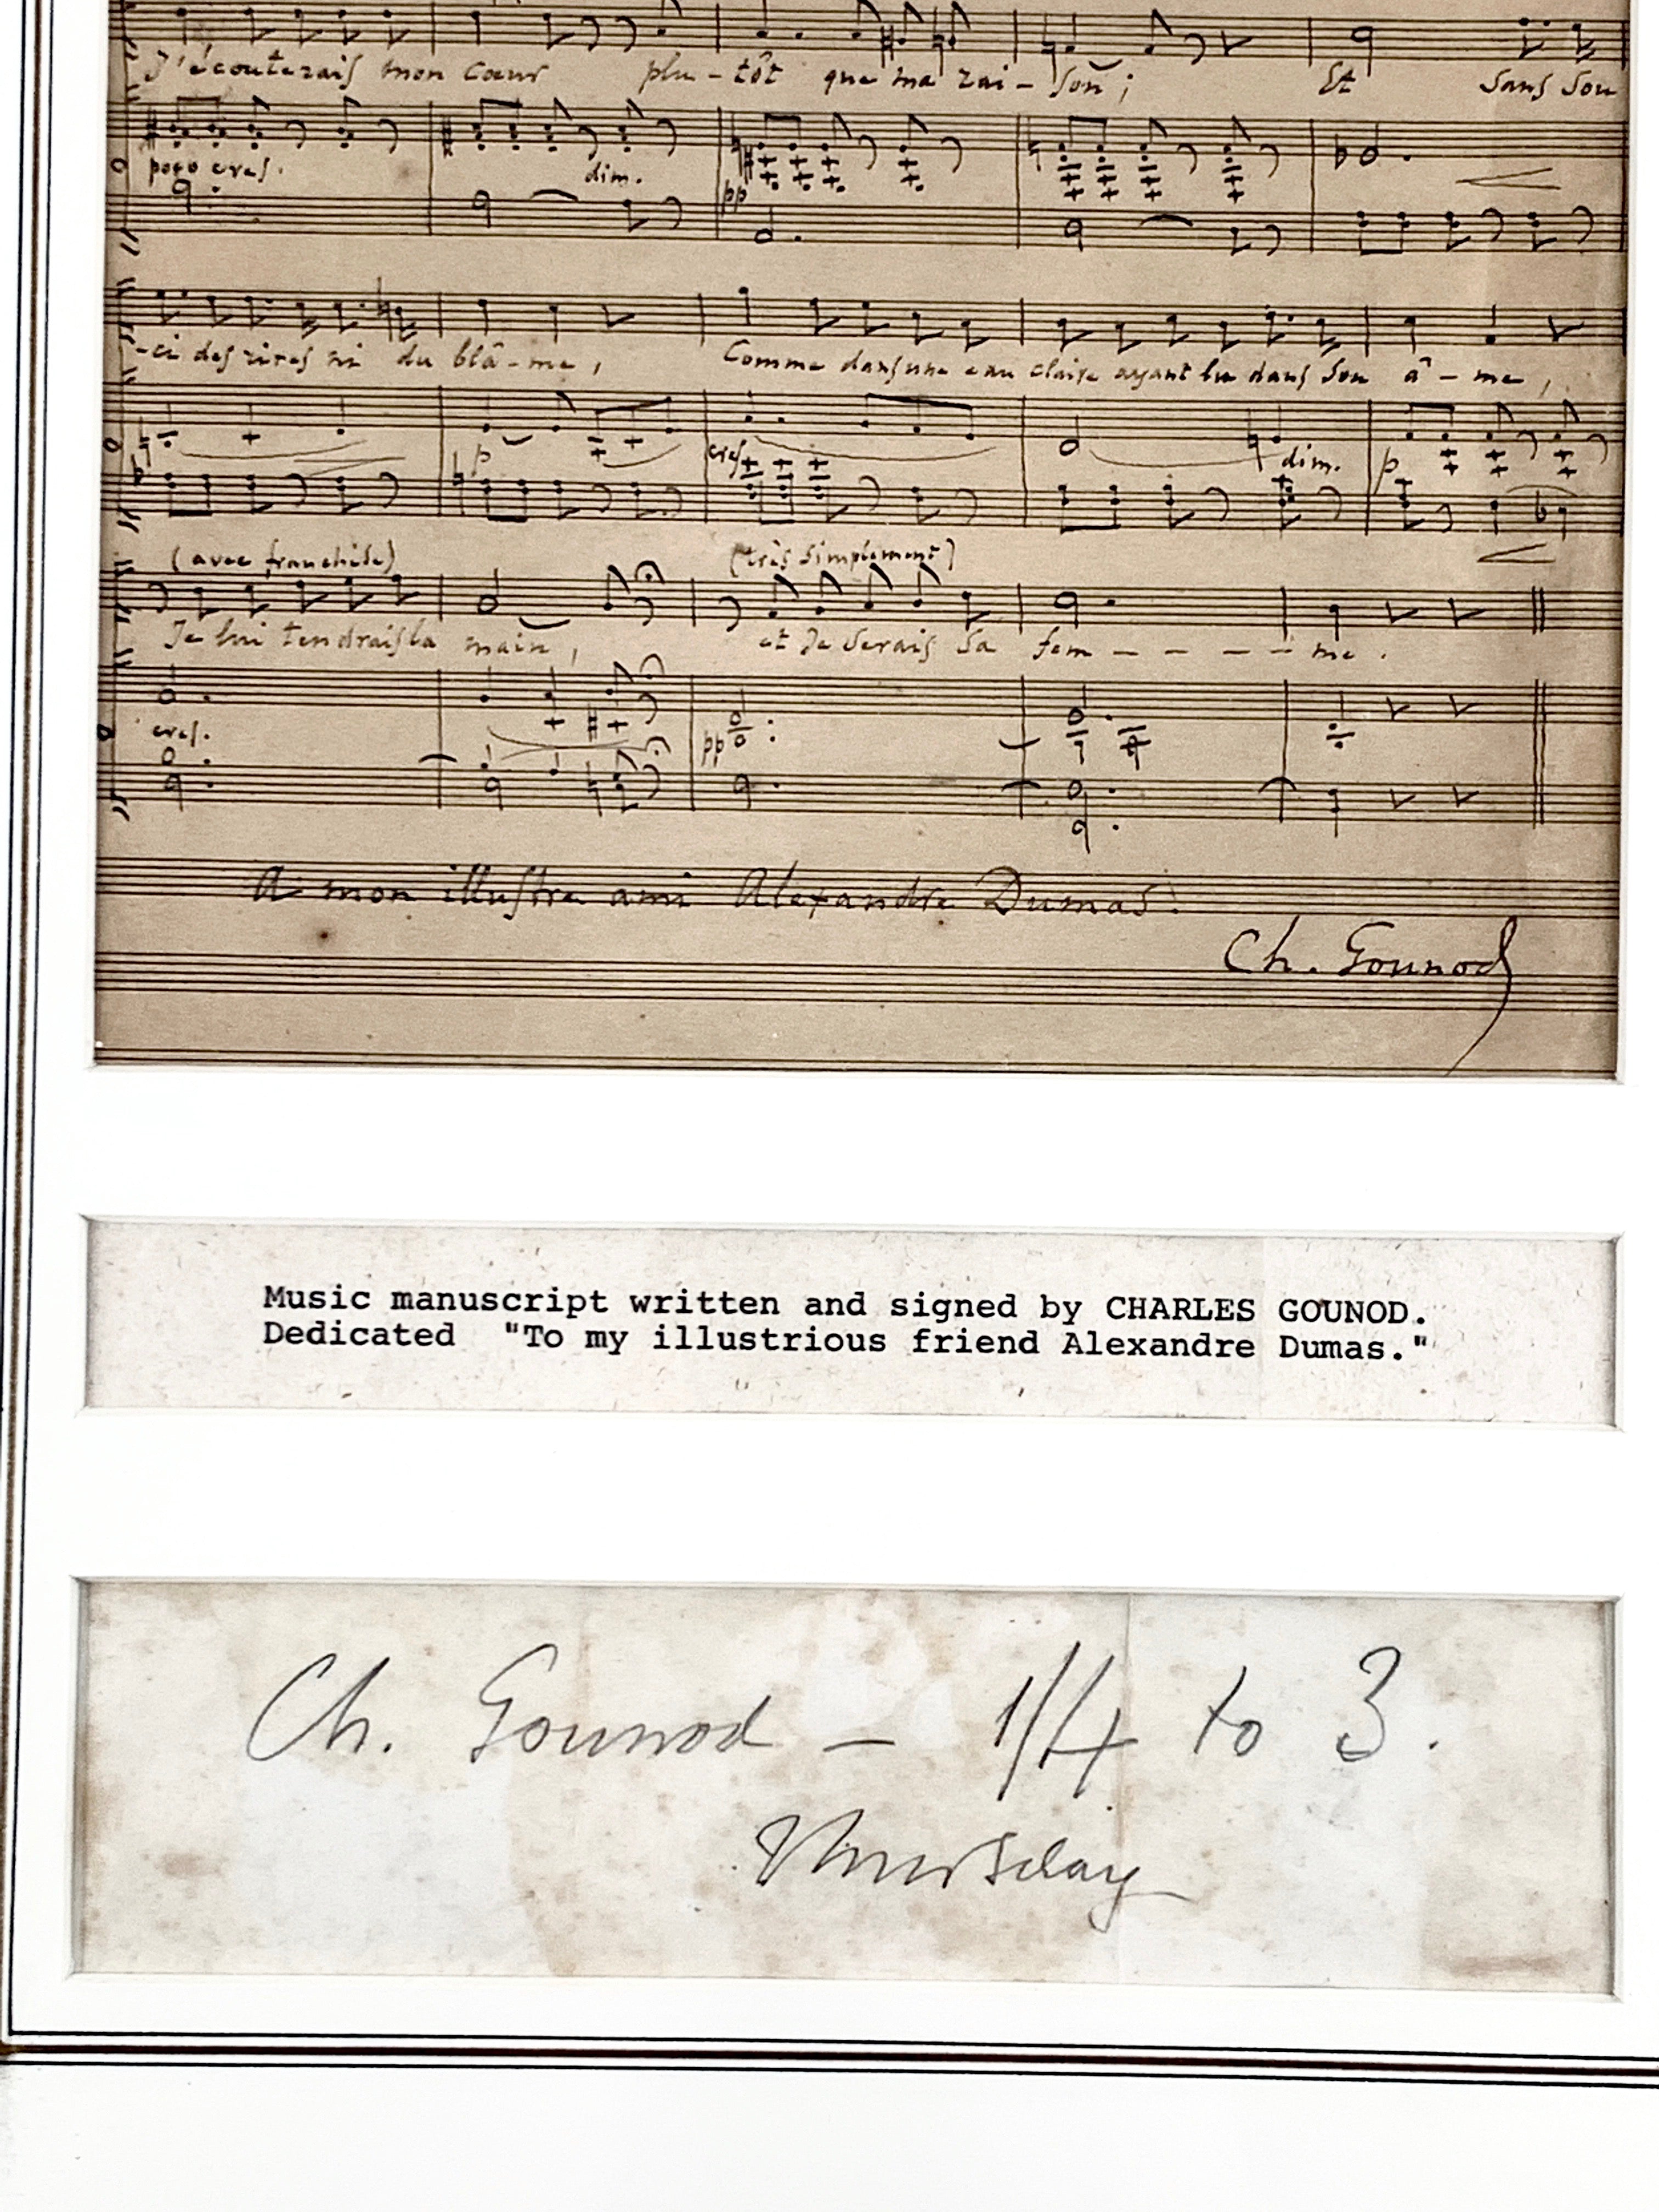 J'écouterais mon cœur plu - tôt que ma rai - son ; Et sans sou
poco cres. dim. pp
-ci des rires ni du blâ - me, Comme dans une eau claire ayant lu dans son â - me,
p cres dim. p
(avec franchise) (très simplement)
Je lui tendrais la main, et je serais sa fem - - - - me.
cres. pp
A mon illustre ami Alexandre Dumas.
Ch. Gounod
Music manuscript written and signed by CHARLES GOUNOD.
Dedicated "To my illustrious friend Alexandre Dumas."
Ch. Gounod — 1/4 to 3.
Thursday